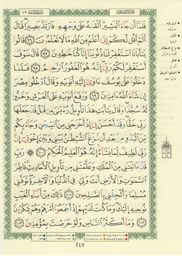 فَلَمَّا أَن جَاءَ الْبَشِيرُ أَلْقَىٰهُ عَلَىٰ وَجْهِهِ فَارْتَدَّ بَصِيرًا قَالَ
أَلَمْ أَقُل لَّكُمْ إِنِّي أَعْلَمُ مِنَ اللَّهِ مَا لَا تَعْلَمُونَ ٩٦ قَالُوا
يَٰأَبَانَا اسْتَغْفِرْ لَنَا ذُنُوبَنَا إِنَّا كُنَّا خَٰطِـِٔينَ ٩٧ قَالَ سَوْفَ
أَسْتَغْفِرُ لَكُمْ رَبِّي إِنَّهُ هُوَ الْغَفُورُ الرَّحِيمُ ٩٨ فَلَمَّا
دَخَلُوا عَلَىٰ يُوسُفَ ءَاوَىٰ إِلَيْهِ أَبَوَيْهِ وَقَالَ ادْخُلُوا مِصْرَ
إِن شَاءَ اللَّهُ ءَامِنِينَ ٩٩ وَرَفَعَ أَبَوَيْهِ عَلَى الْعَرْشِ وَخَرُّوا
لَهُ سُجَّدًا وَقَالَ يَٰأَبَتِ هَٰذَا تَأْوِيلُ رُءْيَٰيَ مِن قَبْلُ قَدْ جَعَلَهَا
رَبِّي حَقًّا وَقَدْ أَحْسَنَ بِي إِذْ أَخْرَجَنِي مِنَ السِّجْنِ وَجَاءَ بِكُم
مِّنَ الْبَدْوِ مِن بَعْدِ أَن نَّزَغَ الشَّيْطَٰنُ بَيْنِي وَبَيْنَ إِخْوَتِي إِنَّ
رَبِّي لَطِيفٌ لِّمَا يَشَاءُ إِنَّهُ هُوَ الْعَلِيمُ الْحَكِيمُ ١٠٠ رَبِّ
قَدْ ءَاتَيْتَنِي مِنَ الْمُلْكِ وَعَلَّمْتَنِي مِن تَأْوِيلِ الْأَحَادِيثِ فَاطِرَ
السَّمَٰوَٰتِ وَالْأَرْضِ أَنتَ وَلِيِّي فِي الدُّنْيَا وَالْءَاخِرَةِ تَوَفَّنِي
مُسْلِمًا وَأَلْحِقْنِي بِالصَّٰلِحِينَ ١٠١ ذَٰلِكَ مِنْ أَنبَاءِ الْغَيْبِ
نُوحِيهِ إِلَيْكَ وَمَا كُنتَ لَدَيْهِمْ إِذْ أَجْمَعُوا أَمْرَهُمْ وَهُمْ يَمْكُرُونَ
١٠٢ وَمَا أَكْثَرُ النَّاسِ وَلَوْ حَرَصْتَ بِمُؤْمِنِينَ ١٠٣
٢٤٧